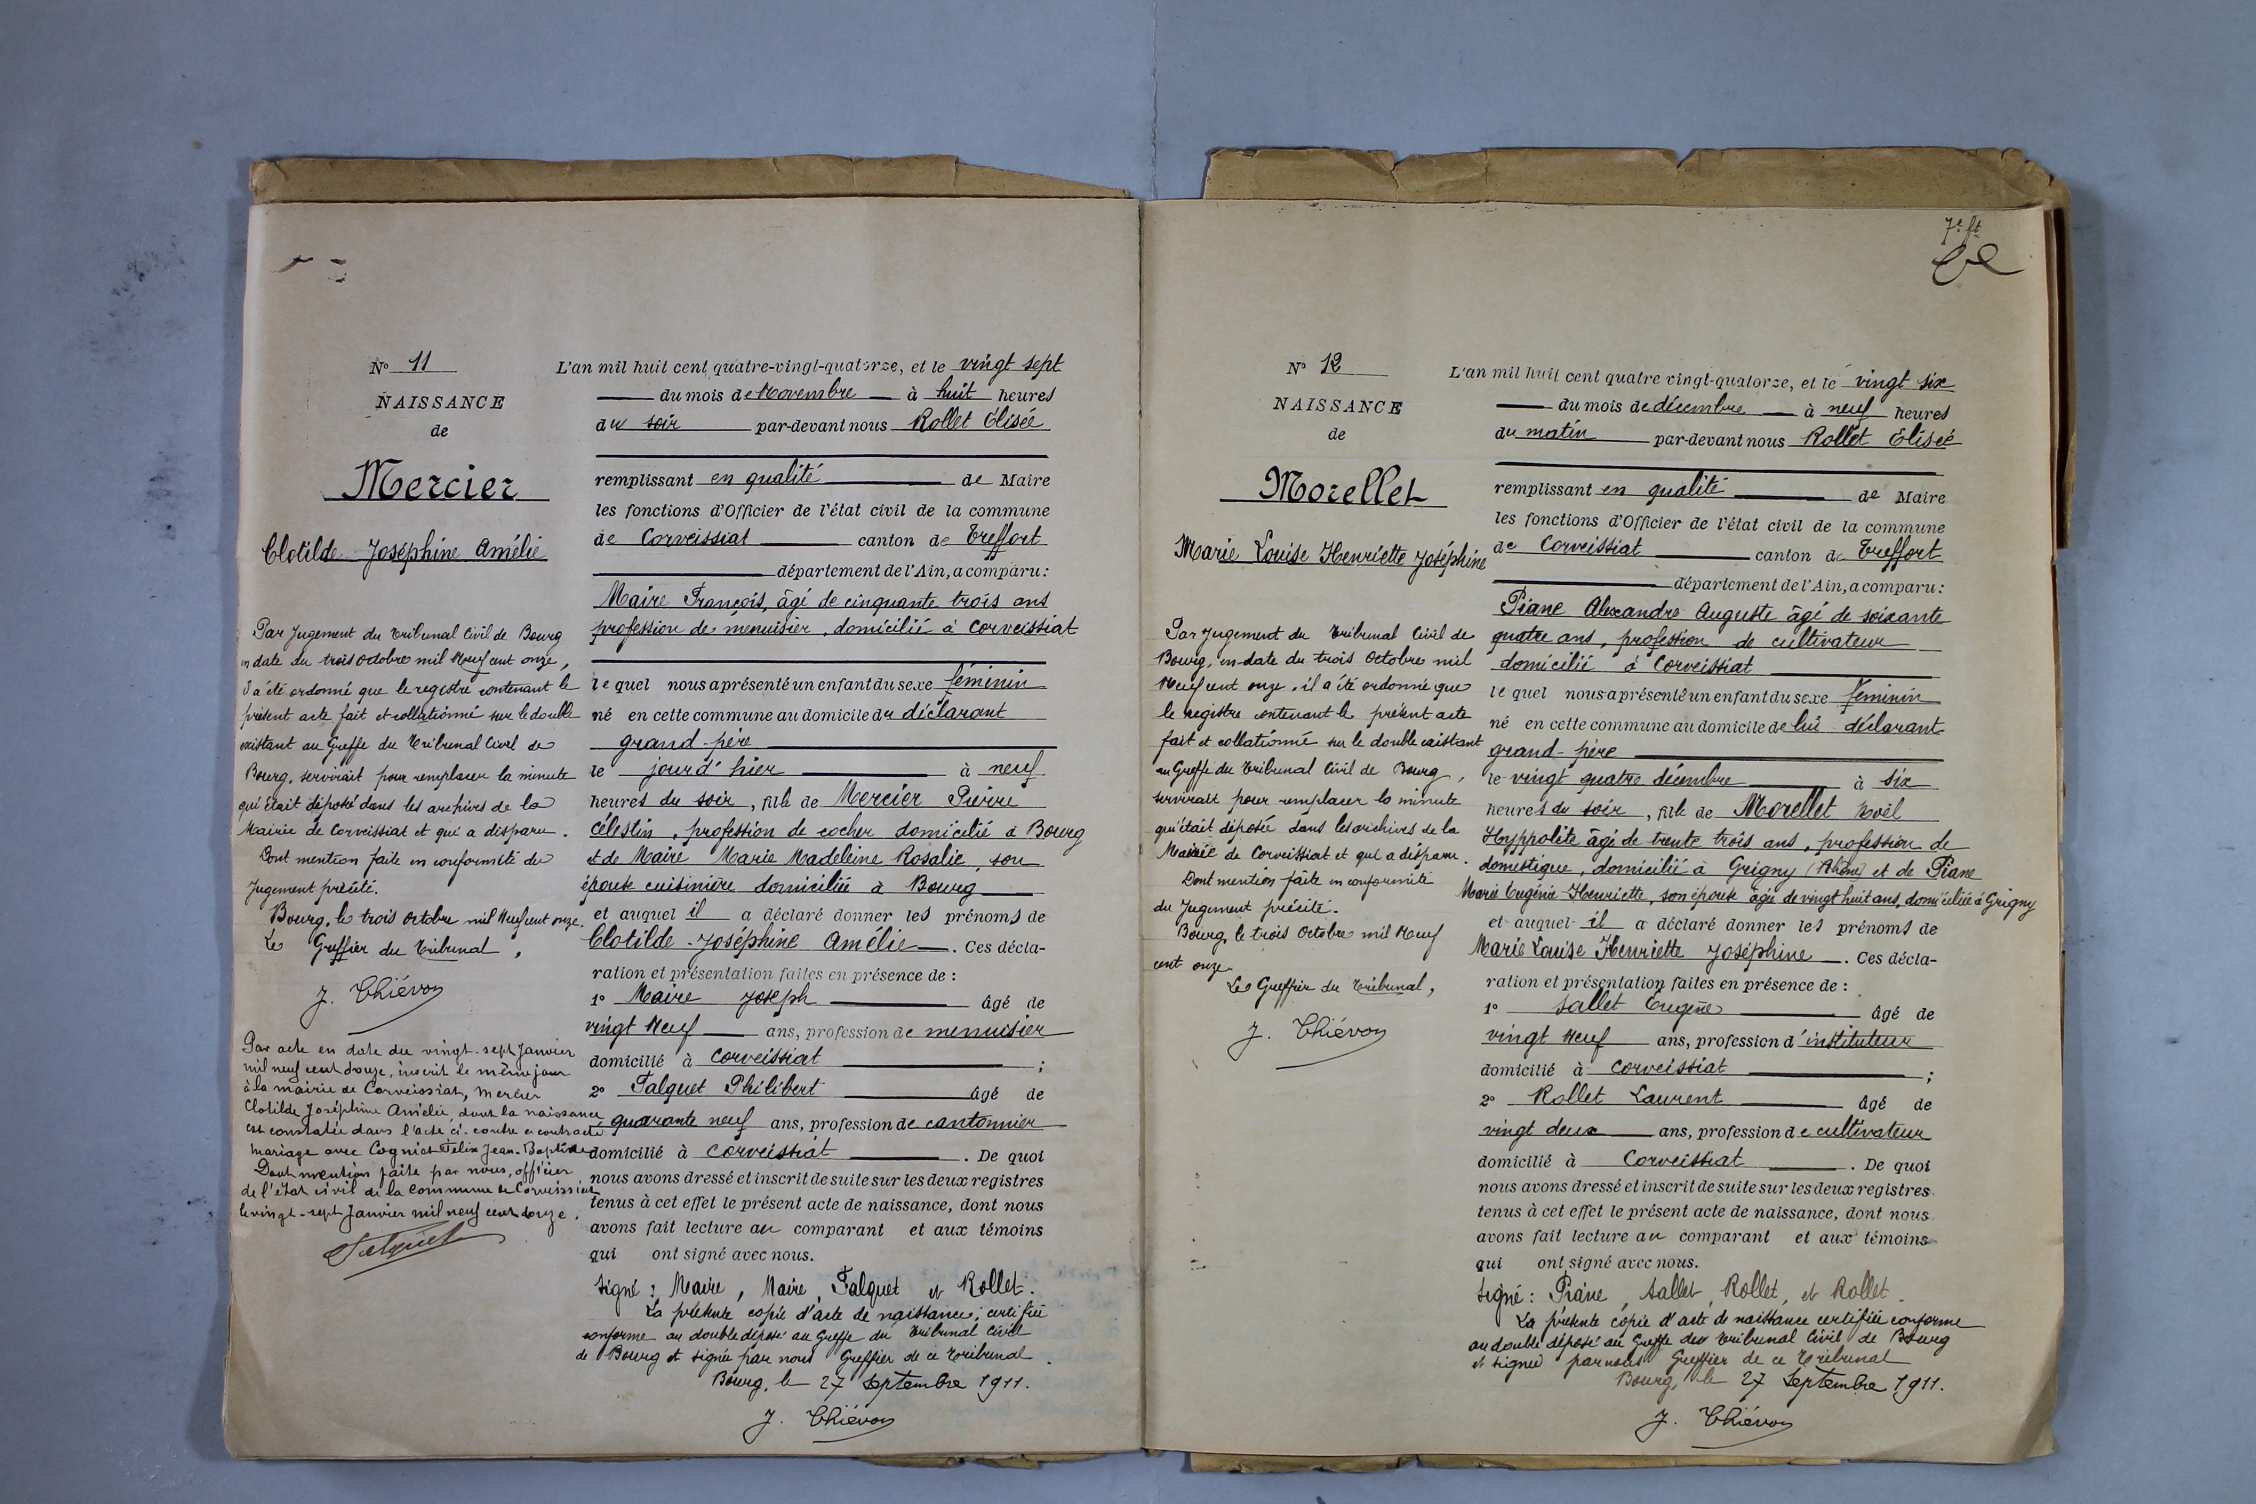 N° 11
NAISSANCE
de
Mercier
Clotilde Joséphine Amélie
Par Jugement du Tribunal Civil de Bourg
en date du trois octobre mil neuf cent onze,
il a été ordonné que le registre contenant le
présent acte fait et collationné sur le double
existant au Greffe du Tribunal Civil de
Bourg, servirait pour remplacer la minute
qui était déposé dans les archives de la
Mairie de Corveissiat et qui a disparu.
Dont mention faite en conformité du
Jugement précité.
Bourg, le trois octobre mil neuf cent onze.
Le Greffier du Tribunal,
J. Thiévon
Par acte en date du vingt-sept Janvier
mil neuf cent douze, inscrit le même jour
à la mairie de Corveissiat, Mercier
Clotilde Joséphine Amélie, dont la naissance
est constatée dans l'acte ci-contre a contracté
mariage avec Cogniat Félix Jean-Baptiste
Dont mention faite par nous, officier
de l'état civil de la commune de Corveissiat
le vingt-sept Janvier mil neuf cent douze.
Falquet
L'an mil huit cent quatre-vingt-quatorze, et le vingt sept
du mois de Novembre à huit heures
du soir par-devant nous Rollet Elisée
remplissant en qualité de Maire
les fonctions d'Officier de l'état civil de la commune
de Corveissiat canton de Treffort
département de l'Ain, a comparu:
Maire François, âgé de cinquante trois ans
profession de menuisier, domicilié à Corveissiat
le quel nous a présenté un enfant du sexe féminin
né en cette commune au domicile du déclarant
grand-père
le jour d'hier à neuf
heures du soir, fille de Mercier Pierre
Célestin, profession de cocher domicilié à Bourg
et de Maire Marie Madeleine Rosalie, son
épouse cuisinière domiciliée à Bourg
et auquel il a déclaré donner les prénoms de
Clotilde-Joséphine Amélie. Ces décla-
ration et présentation faites en présence de :
1° Maire Joseph âgé de
vingt neuf ans, profession de menuisier
domicilié à Corveissiat ;
2° Falquet Philibert âgé de
quarante neuf ans, profession de cantonnier
domicilié à Corveissiat. De quoi
nous avons dressé et inscrit de suite sur les deux registres
tenus à cet effet le présent acte de naissance, dont nous
avons fait lecture au comparant et aux témoins
qui ont signé avec nous.
Signé : Maire, Maire, Falquet et Rollet.
La présente copie d'acte de naissance, certifiée
conforme au double déposé au Greffe du Tribunal Civil
de Bourg et signée par nous Greffier de ce Tribunal.
Bourg, le 27 Septembre 1911.
J. Thiévon
7e ft
N° 12
NAISSANCE
de
Morellet
Marie Louise Henriette Joséphine
Par Jugement du Tribunal Civil de
Bourg, en date du trois octobre mil
neuf cent onze, il a été ordonné que
le registre contenant le présent acte
fait et collationné sur le double existant
au Greffe du Tribunal Civil de Bourg,
servirait pour remplacer la minute
qui était déposée dans les archives de la
Mairie de Corveissiat et qui a disparu.
Dont mention faite en conformité
du Jugement précité.
Bourg, le trois Octobre mil neuf
cent onze.
Le Greffier du Tribunal,
J. Thiévon
L'an mil huit cent quatre vingt-quatorze, et le vingt six
du mois de décembre à neuf heures
du matin par-devant nous Rollet Elisée
remplissant en qualité de Maire
les fonctions d'Officier de l'état civil de la commune
de Corveissiat canton de Treffort
département de l'Ain, a comparu:
Piane Alexandre Auguste âgé de soixante
quatre ans, profession de cultivateur
domicilié à Corveissiat
le quel nous a présenté un enfant du sexe féminin
né en cette commune au domicile de lui déclarant
grand-père
le vingt quatre décembre à six
heures du soir, fille de Morellet Noël
Hyppolite âgé de trente trois ans, profession de
domestique, domicilié à Grigny (Rhône) et de Piane
Marie Eugénie Henriette, son épouse âgée de vingt huit ans, domiciliée à Grigny
et auquel il a déclaré donner les prénoms de
Marie Louise Henriette Joséphine. Ces décla-
ration et présentation faites en présence de :
1° Sallet Eugène âgé de
vingt neuf ans, profession d'instituteur
domicilié à Corveissiat ;
2° Rollet Laurent âgé de
vingt deux ans, profession de cultivateur
domicilié à Corveissiat. De quoi
nous avons dressé et inscrit de suite sur les deux registres
tenus à cet effet le présent acte de naissance, dont nous
avons fait lecture au comparant et aux témoins
qui ont signé avec nous.
Signé : Piane, Sallet, Rollet, et Rollet.
La présente copie d'acte de naissance certifiée conforme
au double déposé au Greffe du Tribunal Civil de Bourg
et signée par nous Greffier de ce Tribunal
Bourg, le 27 Septembre 1911.
J. Thiévon